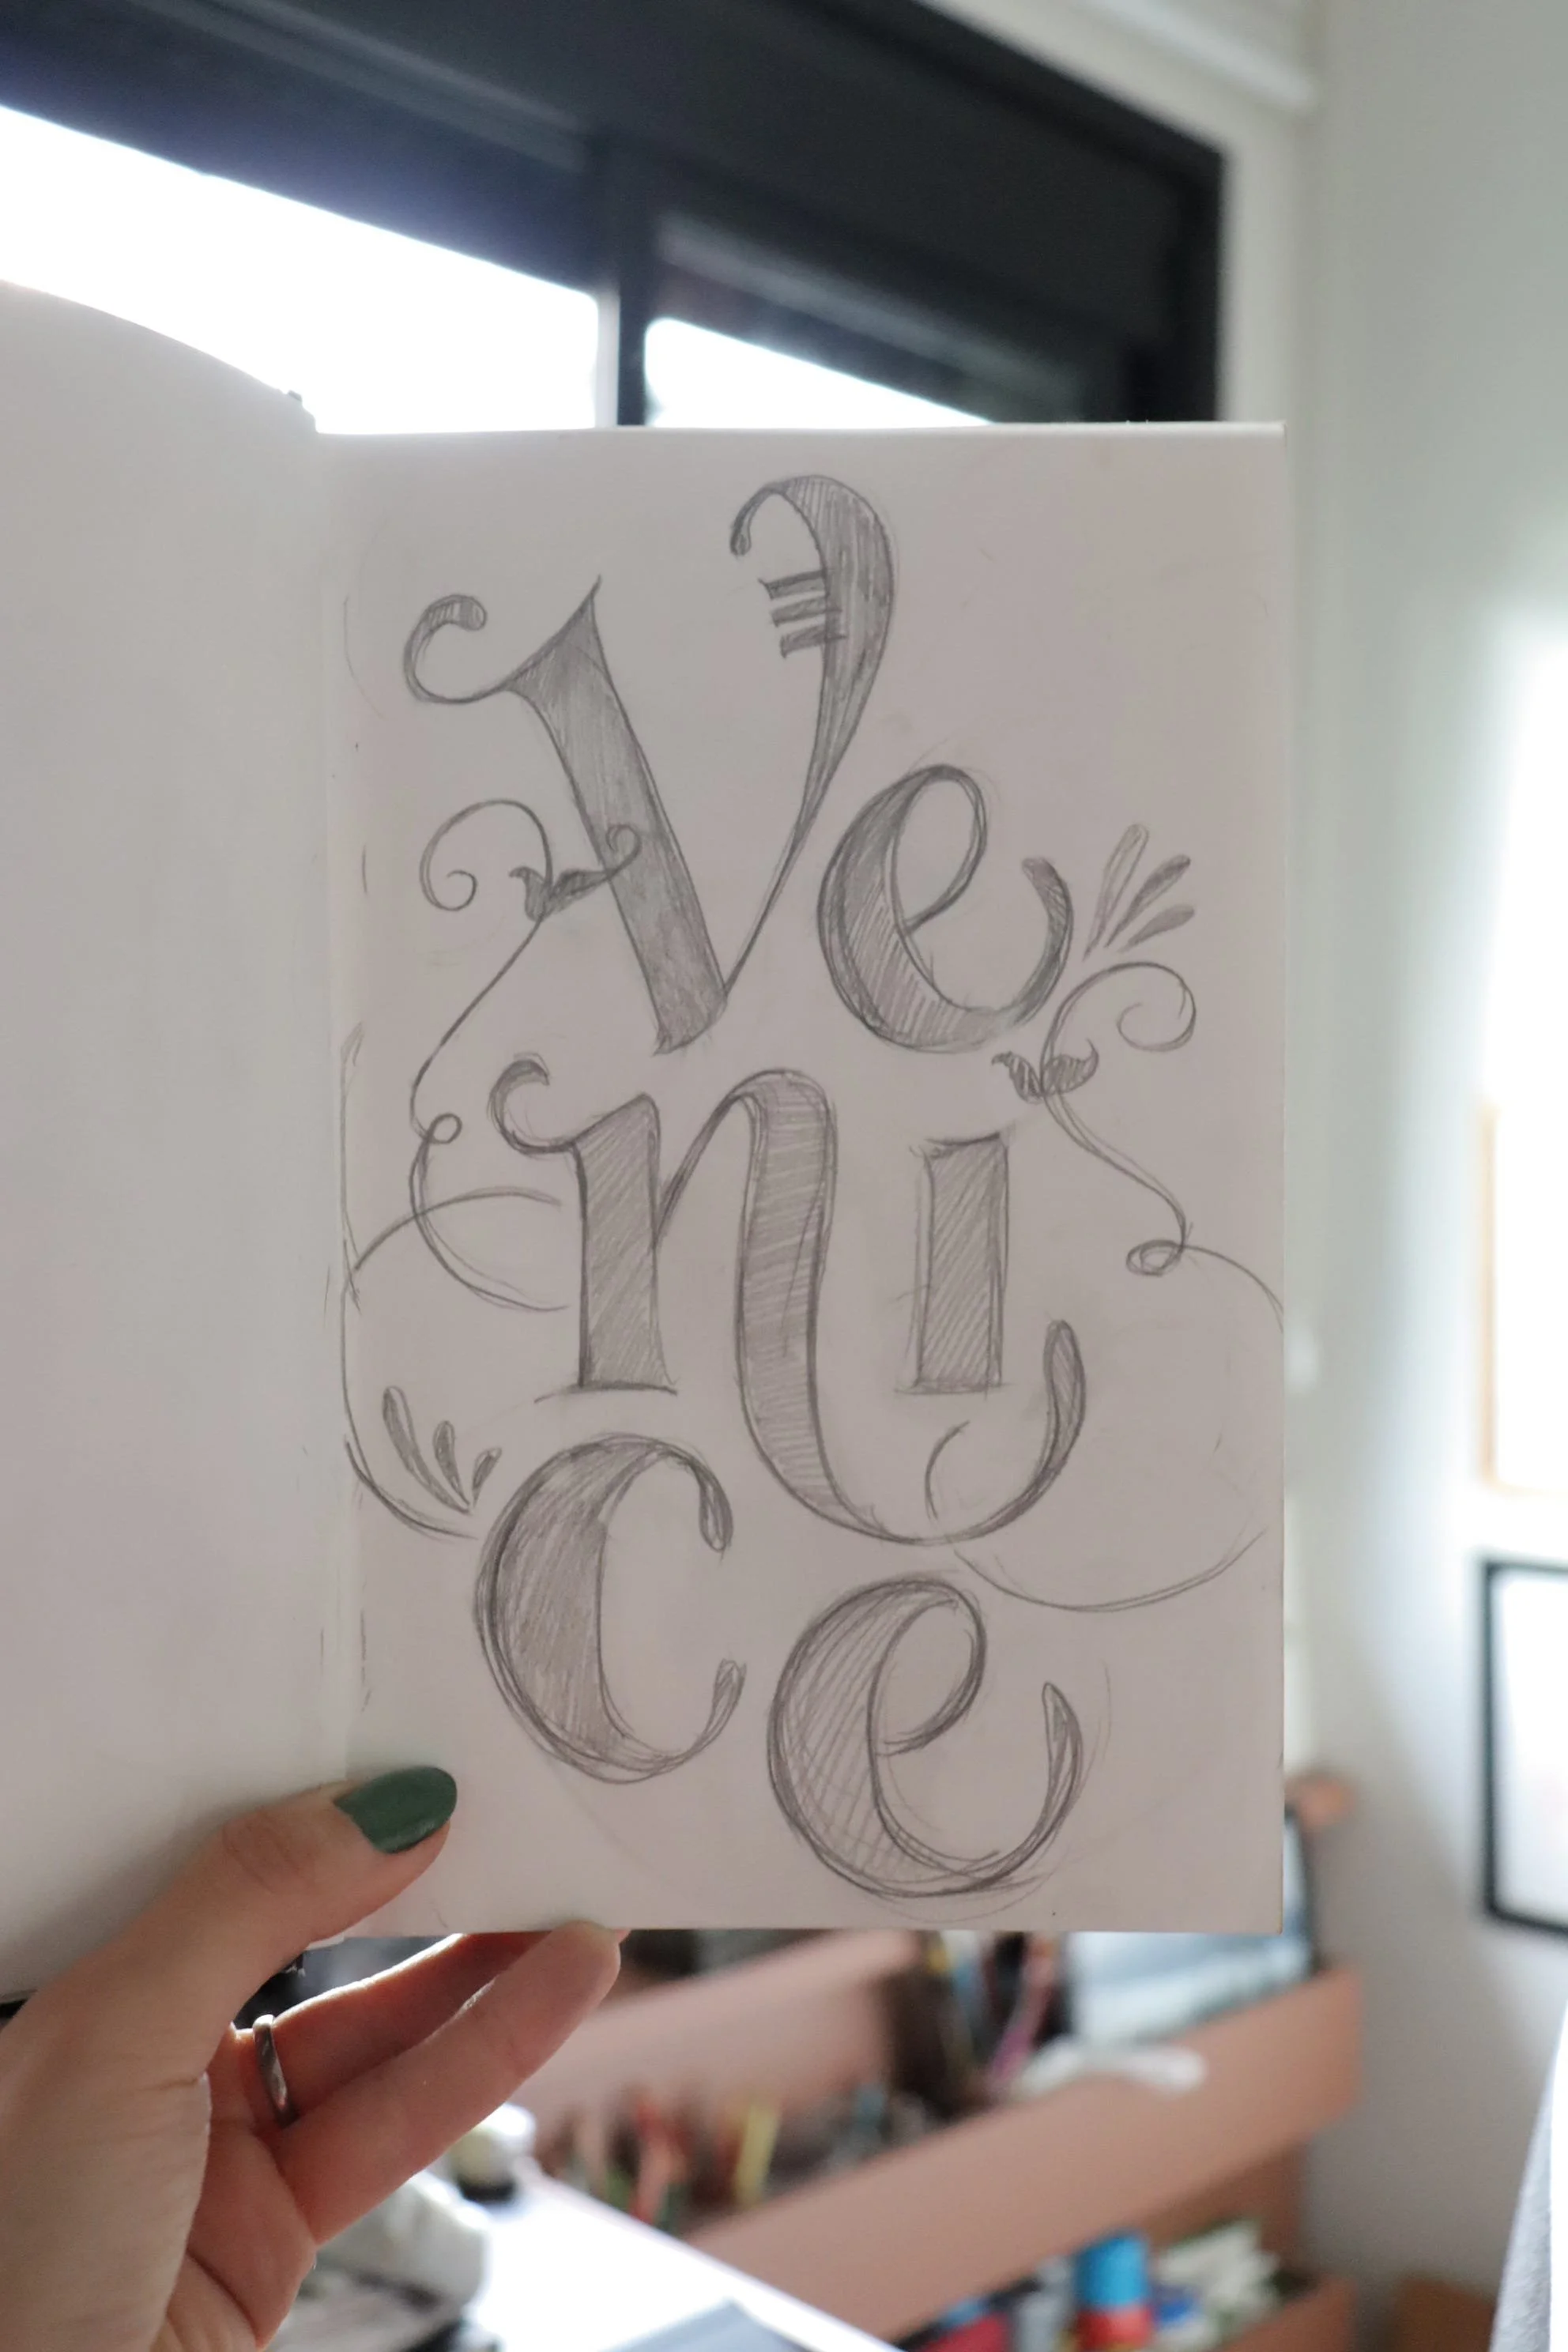 Ve
ni
ce